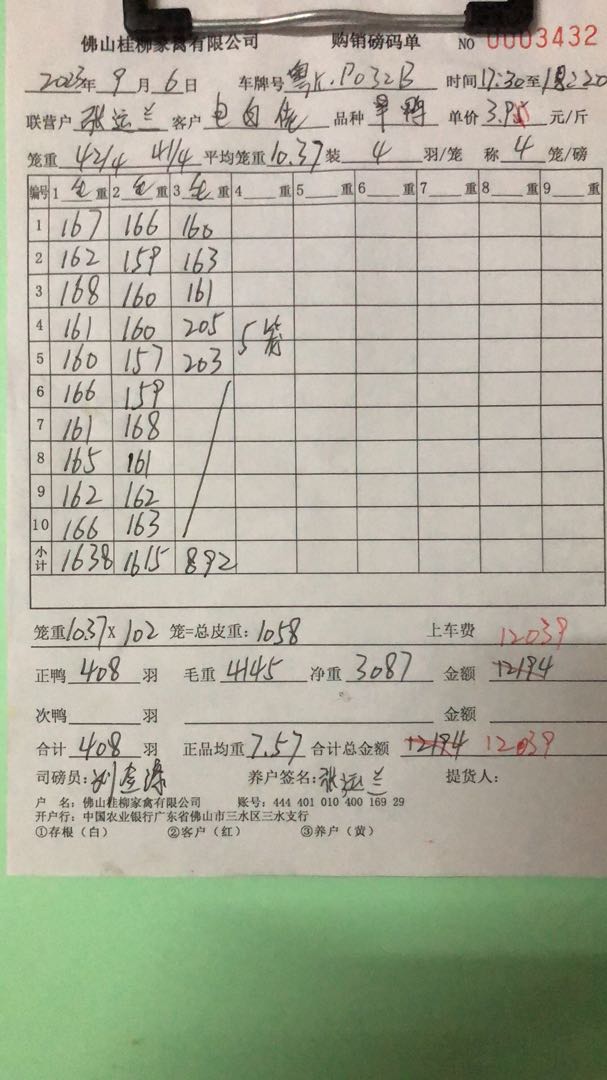 佛山桂柳家禽有限公司 购销磅码单 NO 0003432
2023年 9 月 6 日 车牌号 粤K.P032B 时间 17:30至
联营户 张运兰 客户 电白 品种 旱鸭 单价 3.95 元/斤
笼重 42/4 41/4 平均笼重10.37 装 4 羽/笼 称 4 笼/磅
编号 1 毛 重 2 毛 重 3 毛 重 4 重 5 重 6 重 7 重 8 重 9 重
1 167 166 160
2 162 159 163
3 168 160 161
4 161 160 205 5笼
5 160 157 203
6 166 159
7 161 168
8 165 161
9 162 162
10 166 163
小计 1638 1615 892
笼重10.37 X 102 笼=总皮重：1058 上车费 12039
正鸭 408 羽 毛重 4145 净重 3087 金额 12194
次鸭 羽 金额
合计 408 羽 正品均重 7.57 合计总金额 12194 12039
司磅员： 养户签名：张运兰 提货人：
户 名：佛山桂柳家禽有限公司 账号：444 401 010 400 169 29
开户行：中国农业银行广东省佛山市三水区三水支行
①存根（白） ②客户（红） ③养户（黄）